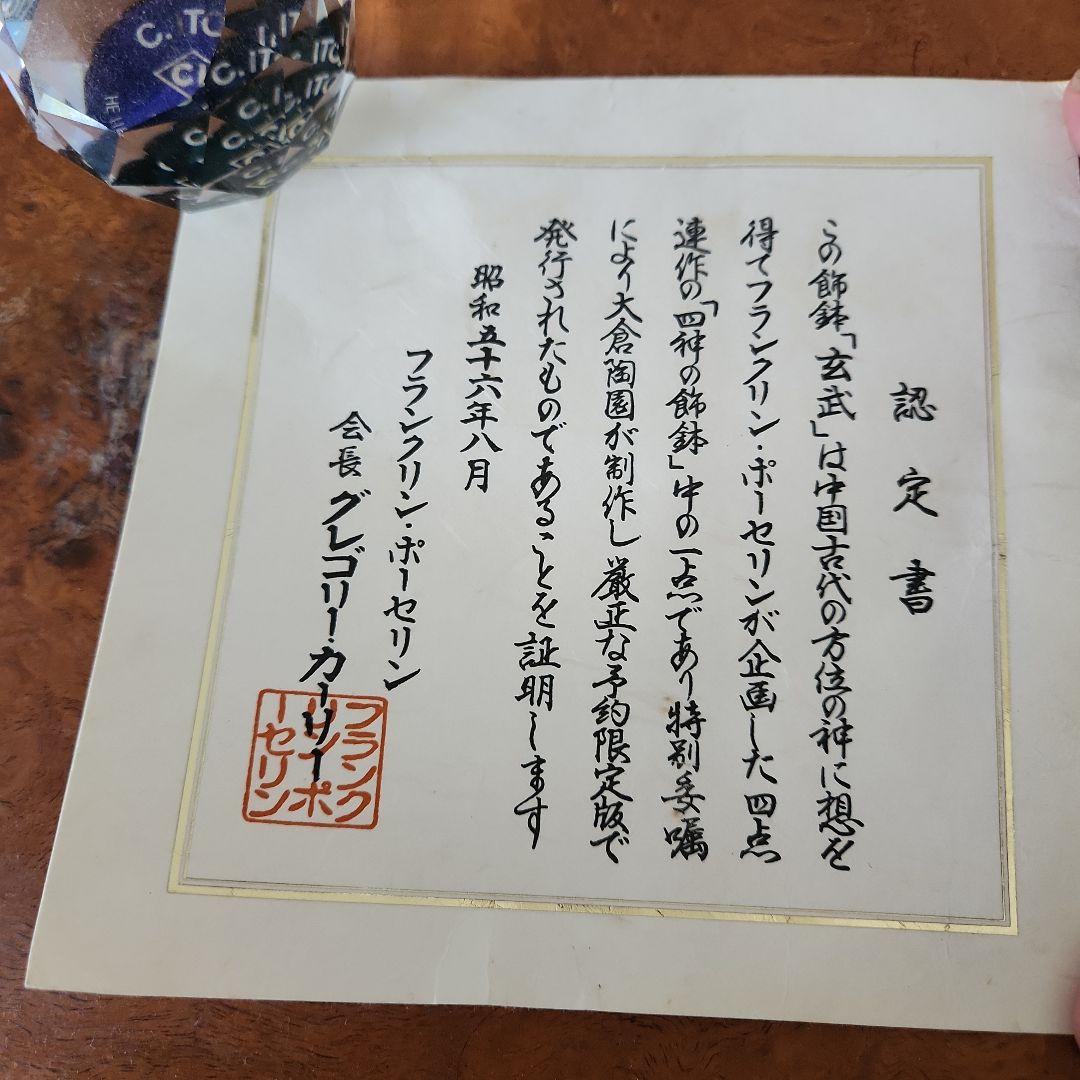 認定書
この飾鉢「玄武」は中国古代の方位の神に想を
得てフランクリン・ポーセリンが企画した四点
連作の「四神の飾鉢」中の一点であり特別委嘱
により大倉陶園が制作し厳正な予約限定版で
発行されたものであることを証明します
昭和五十六年八月
フランクリン・ポーセリン
会長 グレゴリー・カーリー
フランク
リンポ
ーセリン
C. ITO
C. ITO
C. ITO